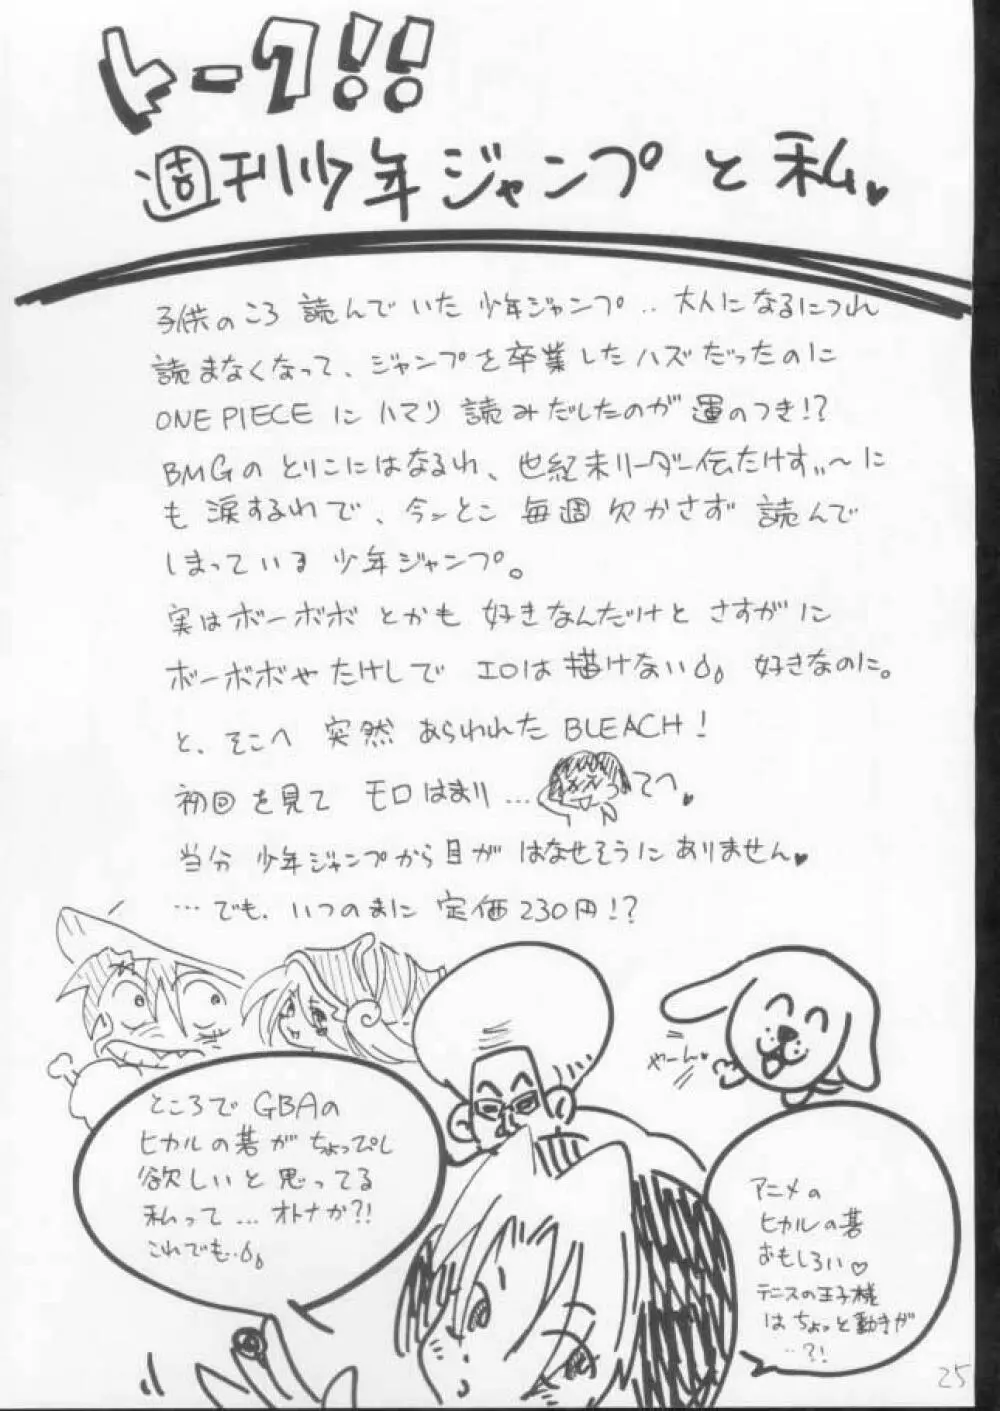 トーク!!
週刊少年ジャンプと私♥
子供のころ 読んでいた 少年ジャンプ‥大人になるにつれ
読まなくなって、ジャンプを卒業したハズだったのに
ONE PIECEにハマり 読みだしたのが 運のつき!?
BMGの とりこにはなるわ、世紀末リーダー伝たけすぃ〜に
も 涙するわで、今んとこ 毎週 欠かさず 読んで
しまっている 少年ジャンプ。
実はボーボボとかも 好きなんだけど さすがに
ボーボボやたけしで エロは描けない 好きなのに。
と、そこへ 突然 あらわれたBLEACH!
初回を見て モロはまり… てへ♥
当分 少年ジャンプから目が はなせそうにありません♥
…でも、いつのまに 定価230円!?
やーん♥
ところでGBAの
ヒカルの碁がちょっぴし
欲しいと思ってる
私って…オトナか?!
これでも‥
アニメの
ヒカルの碁
おもしろい♡
テニスの王子様
はちょっと動きが
‥?!
25